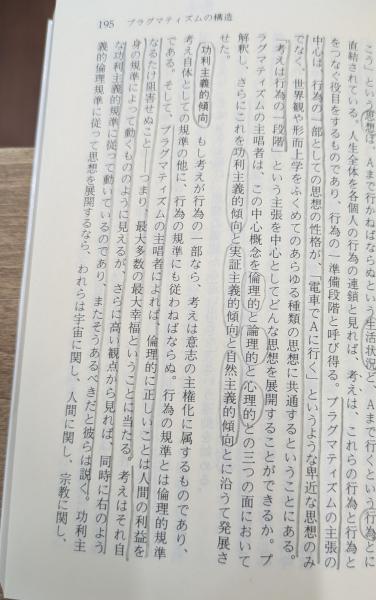 195 プラグマティズムの構造
こう」という思想は、Aまで行かねばならぬという生活状況と、Aまで行くという行為とに
直結されている。人生全体を各個人の行為の連鎖と見れば、考えは、これらの行為と行為と
をつなぐ役目をするものであり、行為の一準備段階と呼び得る。プラグマティズムの主張の
中心は、行為の一部としての思想の性格が、「電車でAに行く」というような卑近な思想のみ
でなく、世界観や形而上学をふくめてのあらゆる種類の思想に共通するということにある。
「考えは行為の一段階」という主張を中心としてどんな思想を展開することができるか。プ
ラグマティズムの主唱者は、この中心概念を倫理的と論理的と心理的との三つの面において
解釈し、さらにこれを功利主義的傾向と実証主義的傾向と自然主義的傾向とに沿うて発展さ
せた。
功利主義的傾向 もし考えが行為の一部なら、考えは意志の主権化に属するものであり、
考え自体としての規準の他に、行為の規準にも従わねばならぬ。行為の規準とは倫理的規準
である。そして、プラグマティズムの主唱者によれば、倫理的に正しいことは人間の利益を
なるたけ阻害せぬこと――つまり、最大多数の最大幸福ということに当たる。考えはそれ自
身の規準によって動くもののように見えるが、さらに高い観点から見れば、同時に右のよう
な功利主義的規準に従って動いているのであり、またそうあるべきだと彼らは説く。功利主
義的倫理規準に従って思想を展開するなら、われらは宇宙に関し、人間に関し、宗教に関し、